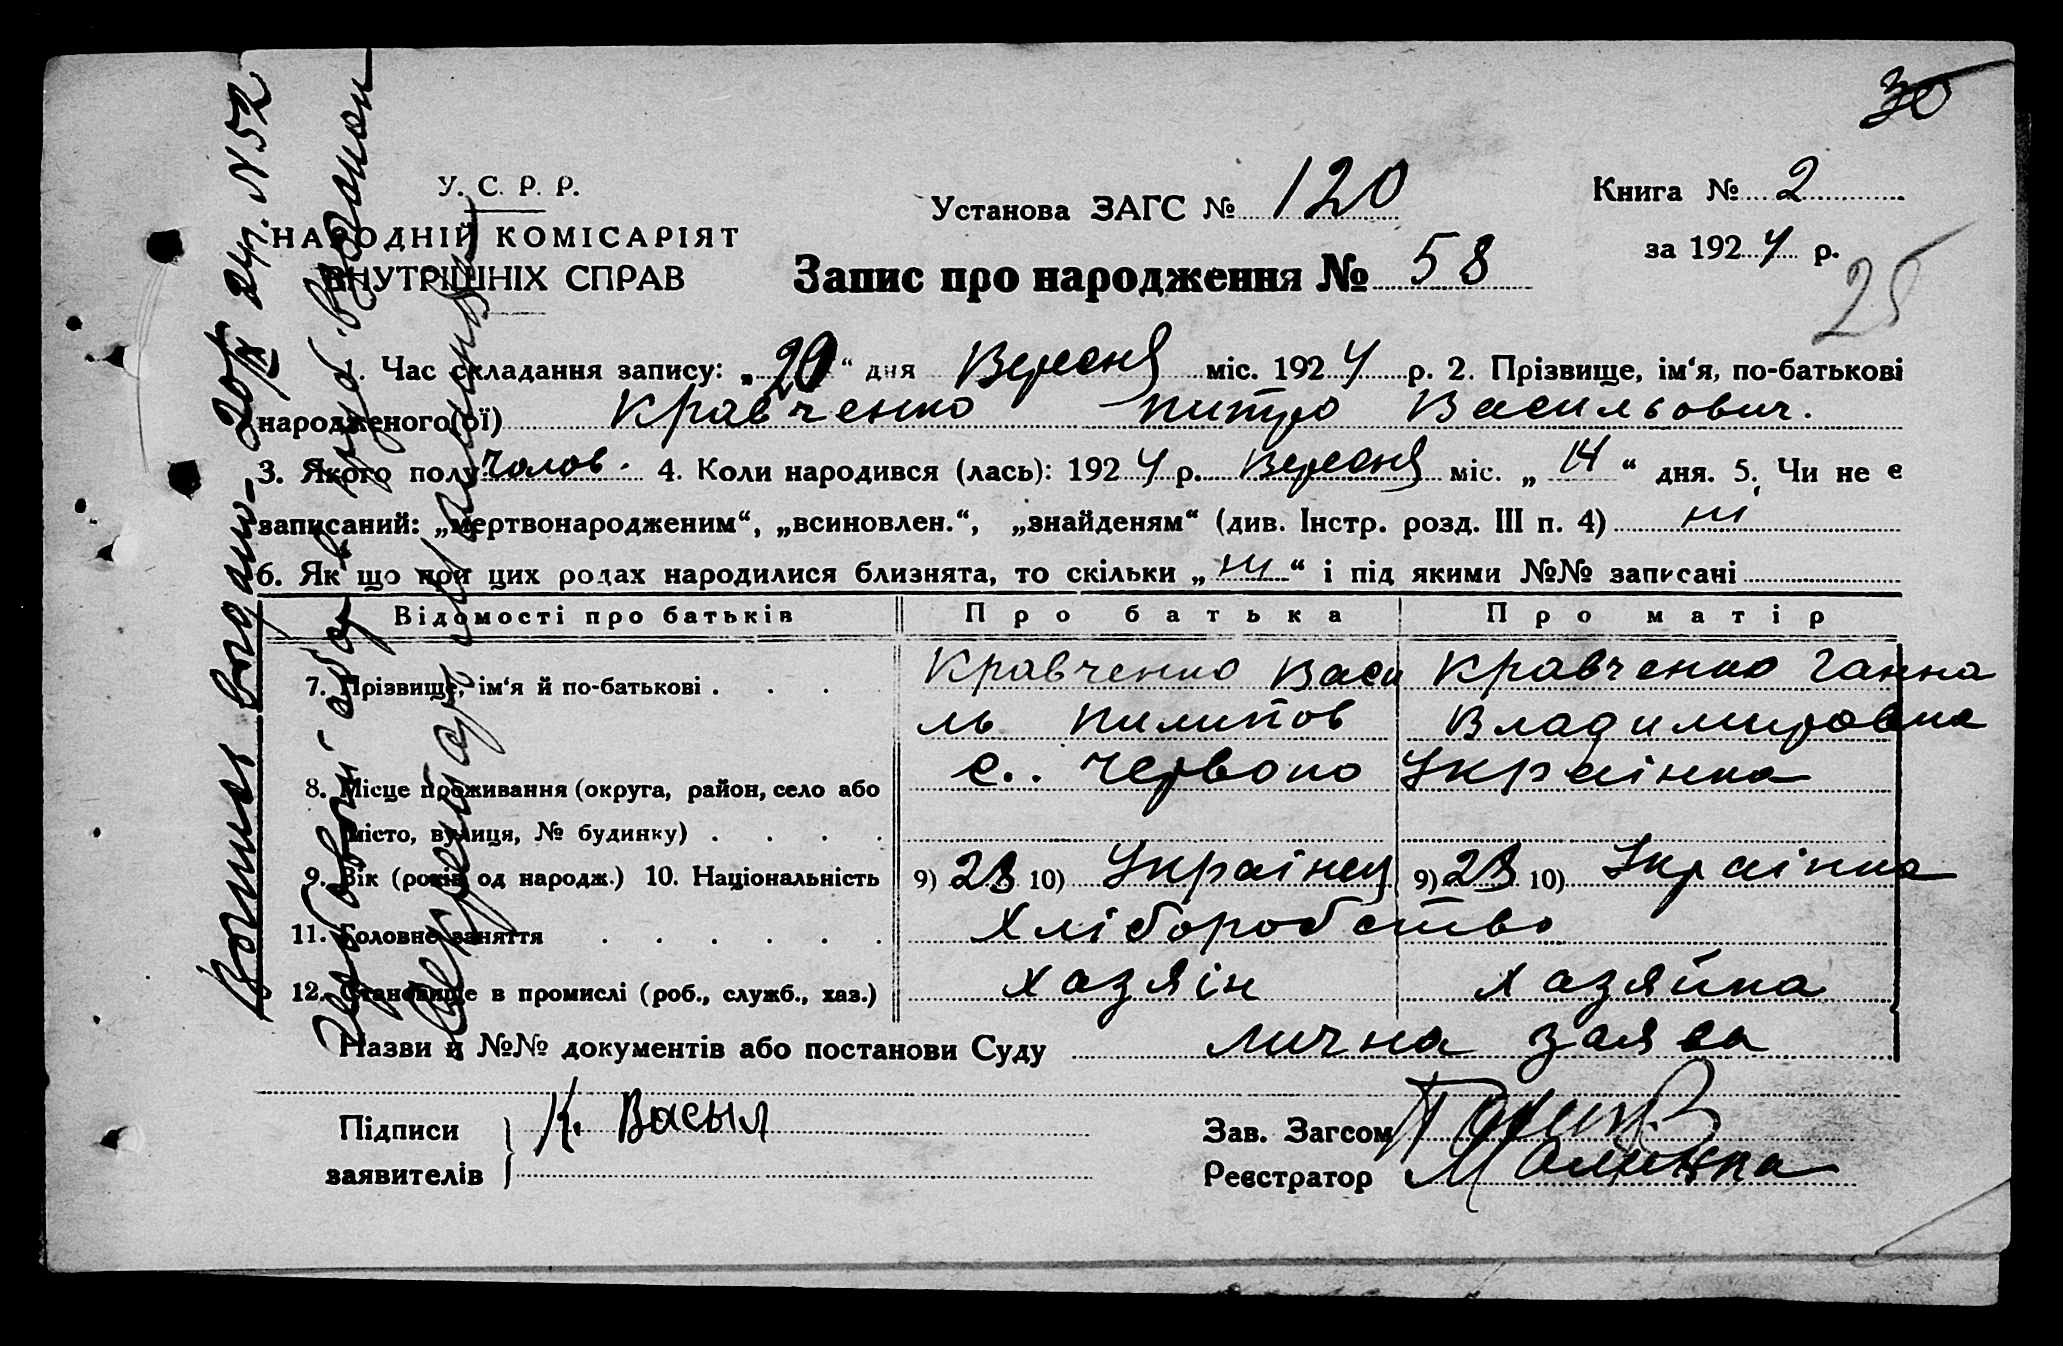 30
У. С. Р. Р.
НАРОДНІЙ КОМІСАРІЯТ
ВНУТРІШНІХ СПРАВ
Установа ЗАГС № 120
Книга № 2
за 1924 р.
Запис про народження № 58
25
1. Час складання запису: „20“ дня Вересня міс. 1924 р. 2. Прізвище, ім‘я, по-батькові
народженого(ої) Кравченко Питро Васильович.
3. Якого полу чолов. 4. Коли народився (лась): 1924 р. Вересня міс. „14“ дня. 5. Чи не є
записаний: „мертвонародженим“, „всиновлен.“, „знайденям“ (див. Інстр. розд. III п. 4) ні
6. Як що при цих родах народилися близнята, то скільки „ні“ і під якими №№ записані
Відомості про батьків Про батька Про матір
7. Прізвище, ім‘я й по-батькові . . . Кравченко Васи Кравченко Ганна
ль Пилипов Владимировна
8. Місце проживання (округа, район, село або с.. Червоно Українка
місто, вулиця, № будинку) . . . .
9. Вік (років од народж.) 10. Національність 9) 28 10) Українец 9) 28 10) Українка
11. Головне заняття . . . . . . Хліборобство
12. Становище в промислі (роб., служб., хаз.) хазяін хазяйка
Назви й №№ документів або постанови Суду лична заява
Підписи К. Васыл
заявителів
Зав. Загсом
Реєстратор
20/IX 24р. N 52